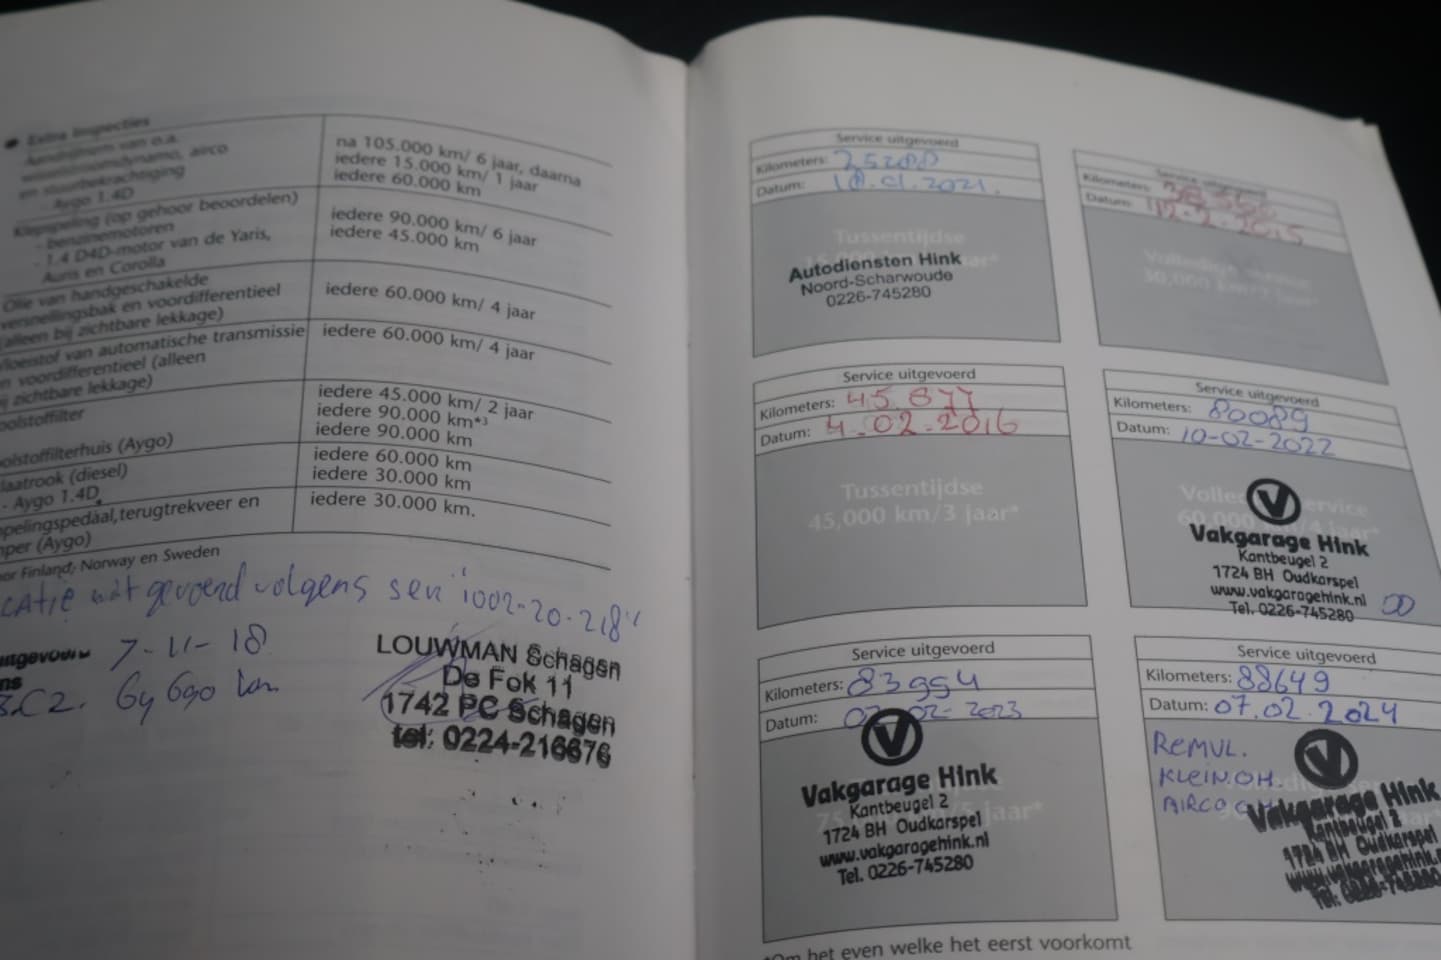 Extra inspecties
Aandrijfriem van o.a.
wisselstroomdynamo, airco
en stuurbekrachtiging
- Aygo 1.4D
na 105.000 km/ 6 jaar, daarna
iedere 15.000 km/ 1 jaar
iedere 60.000 km
Klepspeling (op gehoor beoordelen)
- benzinemotoren
- 1.4 D4D-motor van de Yaris,
Auris en Corolla
iedere 90.000 km/ 6 jaar
iedere 45.000 km
Olie van handgeschakelde
versnellingsbak en voordifferentieel
(alleen bij zichtbare lekkage)
iedere 60.000 km/ 4 jaar
vloeistof van automatische transmissie
n voordifferentieel (alleen
ij zichtbare lekkage)
iedere 60.000 km/ 4 jaar
oolstoffilter
iedere 45.000 km/ 2 jaar
iedere 90.000 km*³
oolstoffilterhuis (Aygo)
iedere 90.000 km
laatrook (diesel)
- Aygo 1.4D
iedere 60.000 km
iedere 30.000 km
ppelingspedaal, terugtrekveer en
mper (Aygo)
iedere 30.000 km.
or Finland, Norway en Sweden
volgens
1002-20-218"
7-11-18
64690 km
LOUWMAN Schagen
De Fok 11
1742 PC Schagen
tel: 0224-216676
Service uitgevoerd
Kilometers: 75288
Datum: 18.01.2021.
Tussentijdse
Autodiensten Hink
Noord-Scharwoude
0226-745280
Service uitgevoerd
Kilometers:
Datum: 12-2-2015
Volledige service
30,000 km/2 jaar*
Service uitgevoerd
Kilometers: 45.677
Datum: 4.02.2016
Tussentijdse
45,000 km/3 jaar*
Service uitgevoerd
Kilometers: 80089
Datum: 10-02-2022
Volledige service
60,000 km/4 jaar*
Vakgarage Hink
Kantbeugel 2
1724 BH Oudkarspel
www.vakgaragehink.nl
Tel. 0226-745280
Service uitgevoerd
Kilometers: 83994
Datum: 07-02-2023
Vakgarage Hink
Kantbeugel 2
1724 BH Oudkarspel
www.vakgaragehink.nl
Tel. 0226-745280
Service uitgevoerd
Kilometers: 88649
Datum: 07.02.2024
REMVL.
KLEIN.OH
AIRCO
Vakgarage Hink
Kantbeugel 2
1724 BH Oudkarspel
www.vakgaragehink.nl
Tel. 0226-745280
*Om het even welke het eerst voorkomt